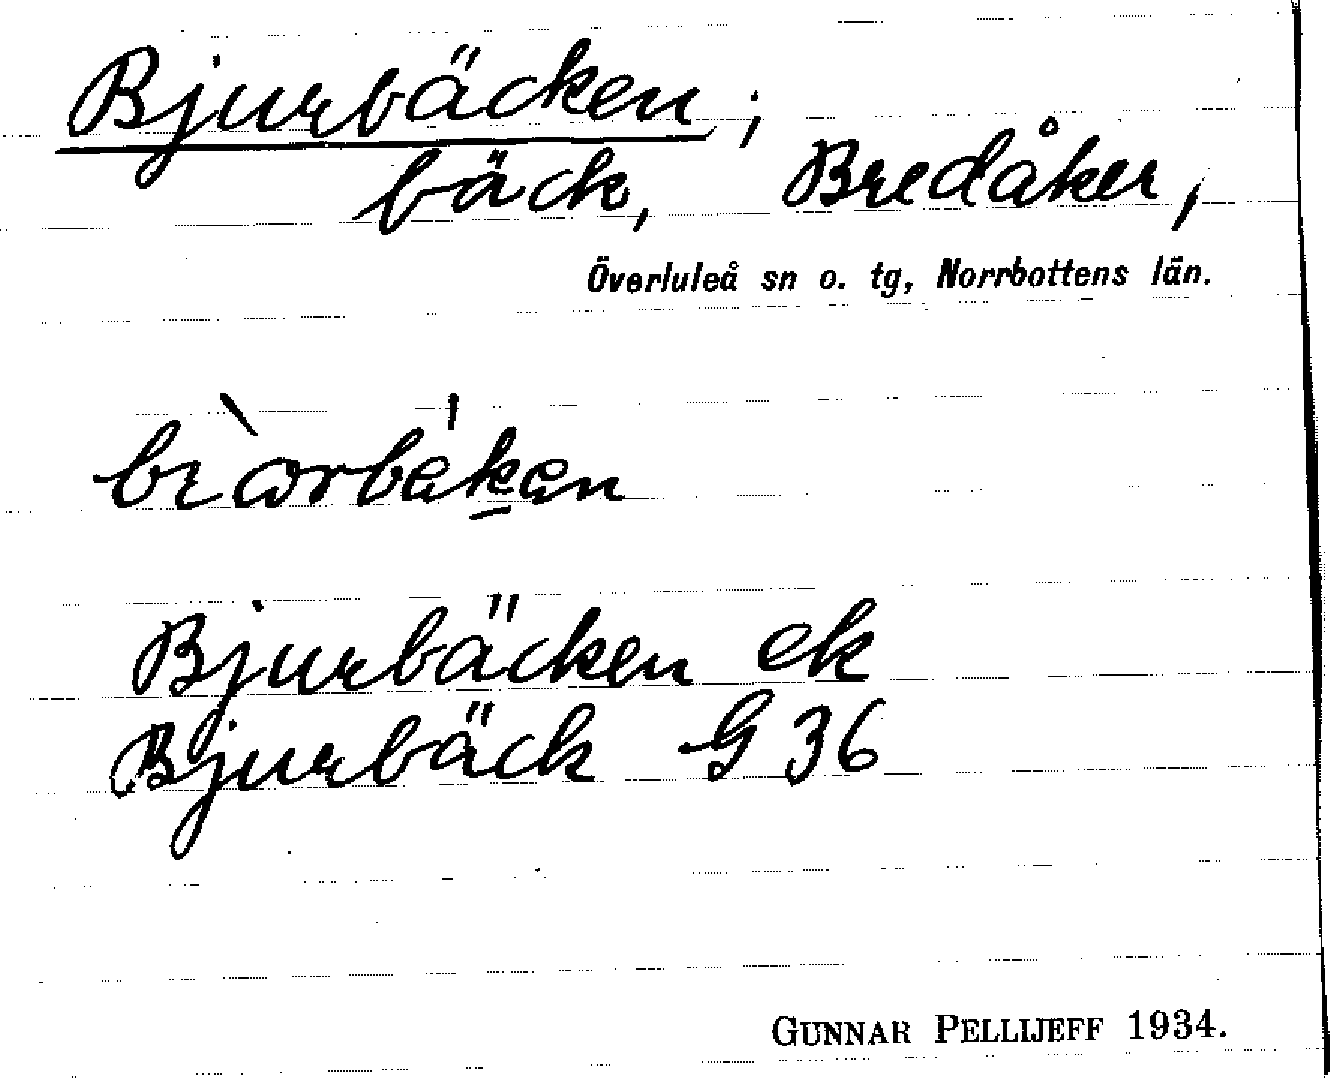 Bjurbäcken;
bäck, Bredåker,
Överluleå sn o. tg, Norrbottens län.
Bjurbäcken ek
Bjurbäck G 36
GUNNAR PELLIJEFF 1934.